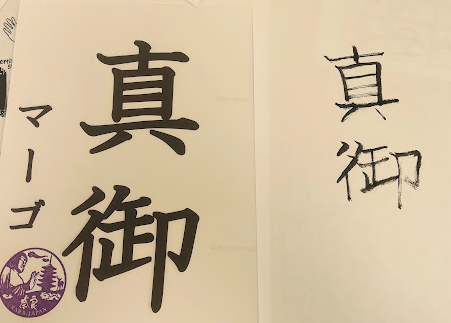 真御
マーゴ
奈良
NARA JAPAN
真御